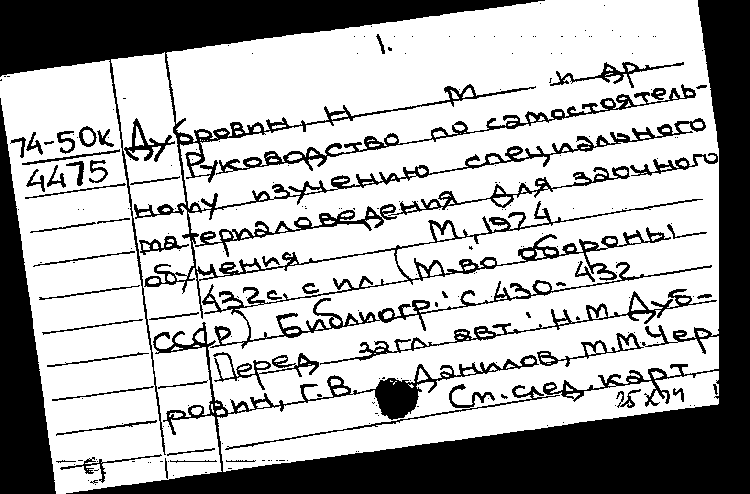 1.
74-50к
4475
Дубровин, Н М и др.
Руководство по самостоятель-
ному изучению специального
материаловедения для заочного
обучения. М., 1974.
432с. с ил. (М-во обороны
СССР). Библиогр.: с.430-432.
Перед загл. авт.: Н.М. Дуб-
ровин, Г.В. Данилов, М.М. Чер
См. след. карт.
25 X 74